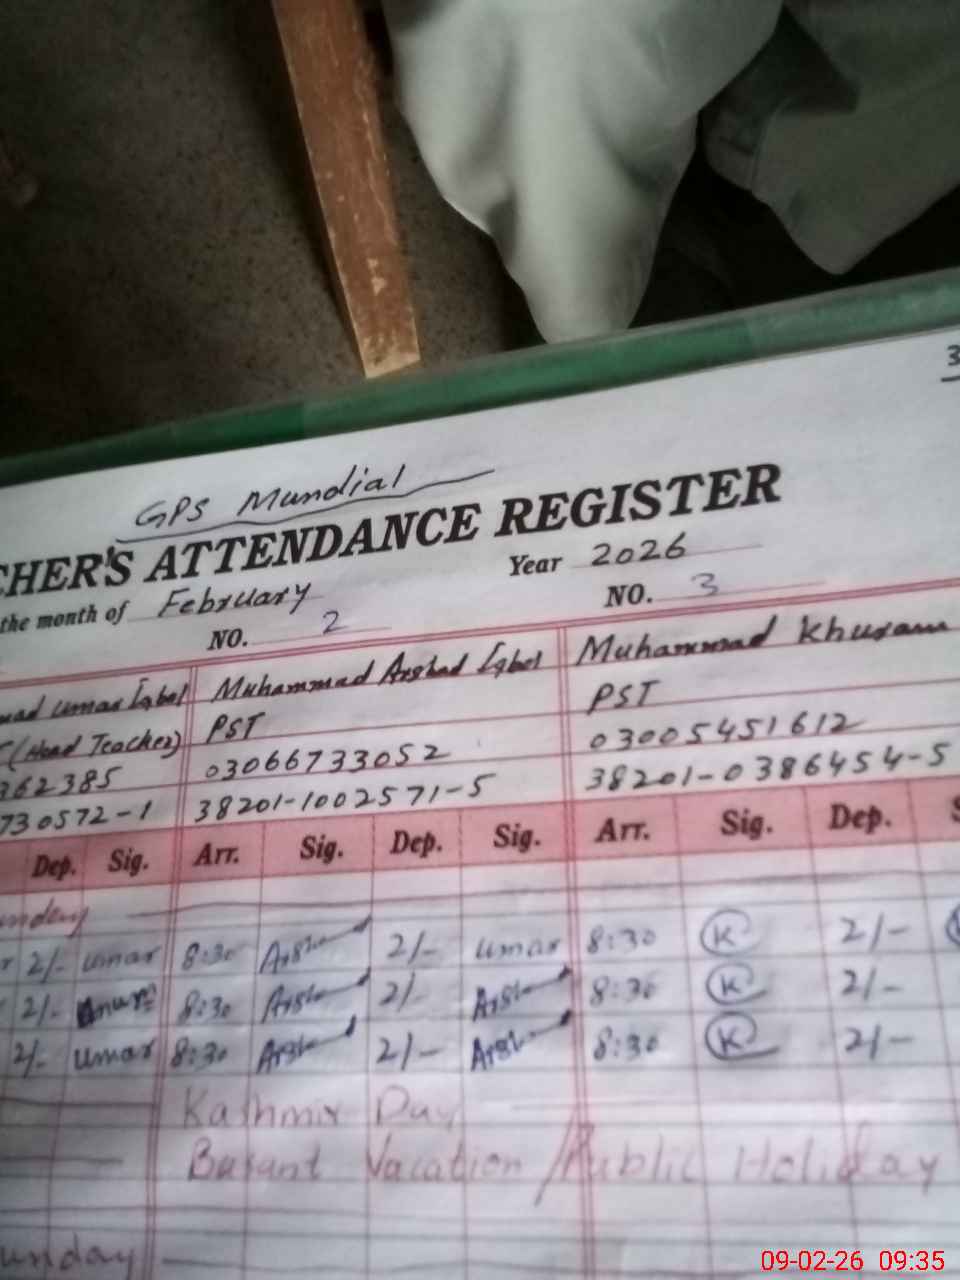 3
GPS Mundial
CHER'S ATTENDANCE REGISTER
the month of February Year 2026
NO. 2 NO. 3
mad Umar Iqbal Muhammad Arshad Iqbal Muhammad Khuram
(Head Teacher) PST PST
362385 03066733052 03005451612
730572-1 38201-1002571-5 38201-0386454-5
Dep. Sig. Arr. Sig. Dep. Sig. Arr. Sig. Dep. S
unday
2/- umar 8:30 Arsh 2/- umar 8:30 K 2/-
2/- 8:30 Arsh 2/- Arsh 8:30 K 2/-
2/- umar 8:30 Arsh 2/- Arsh 8:30 K 2/-
Kashmir Day
Basant Vacation / Public Holiday
unday
09-02-26 09:35